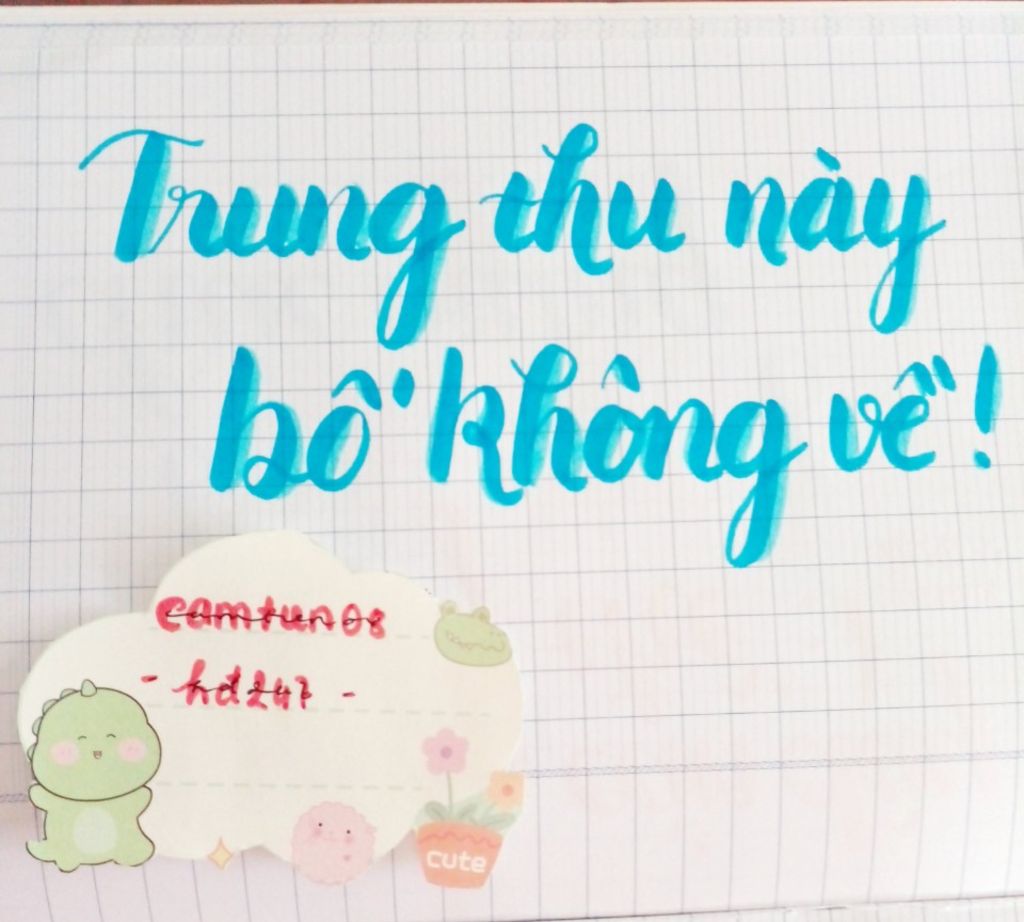 Trung thu này
bố không về!
camtun08
- hd247 -
cute